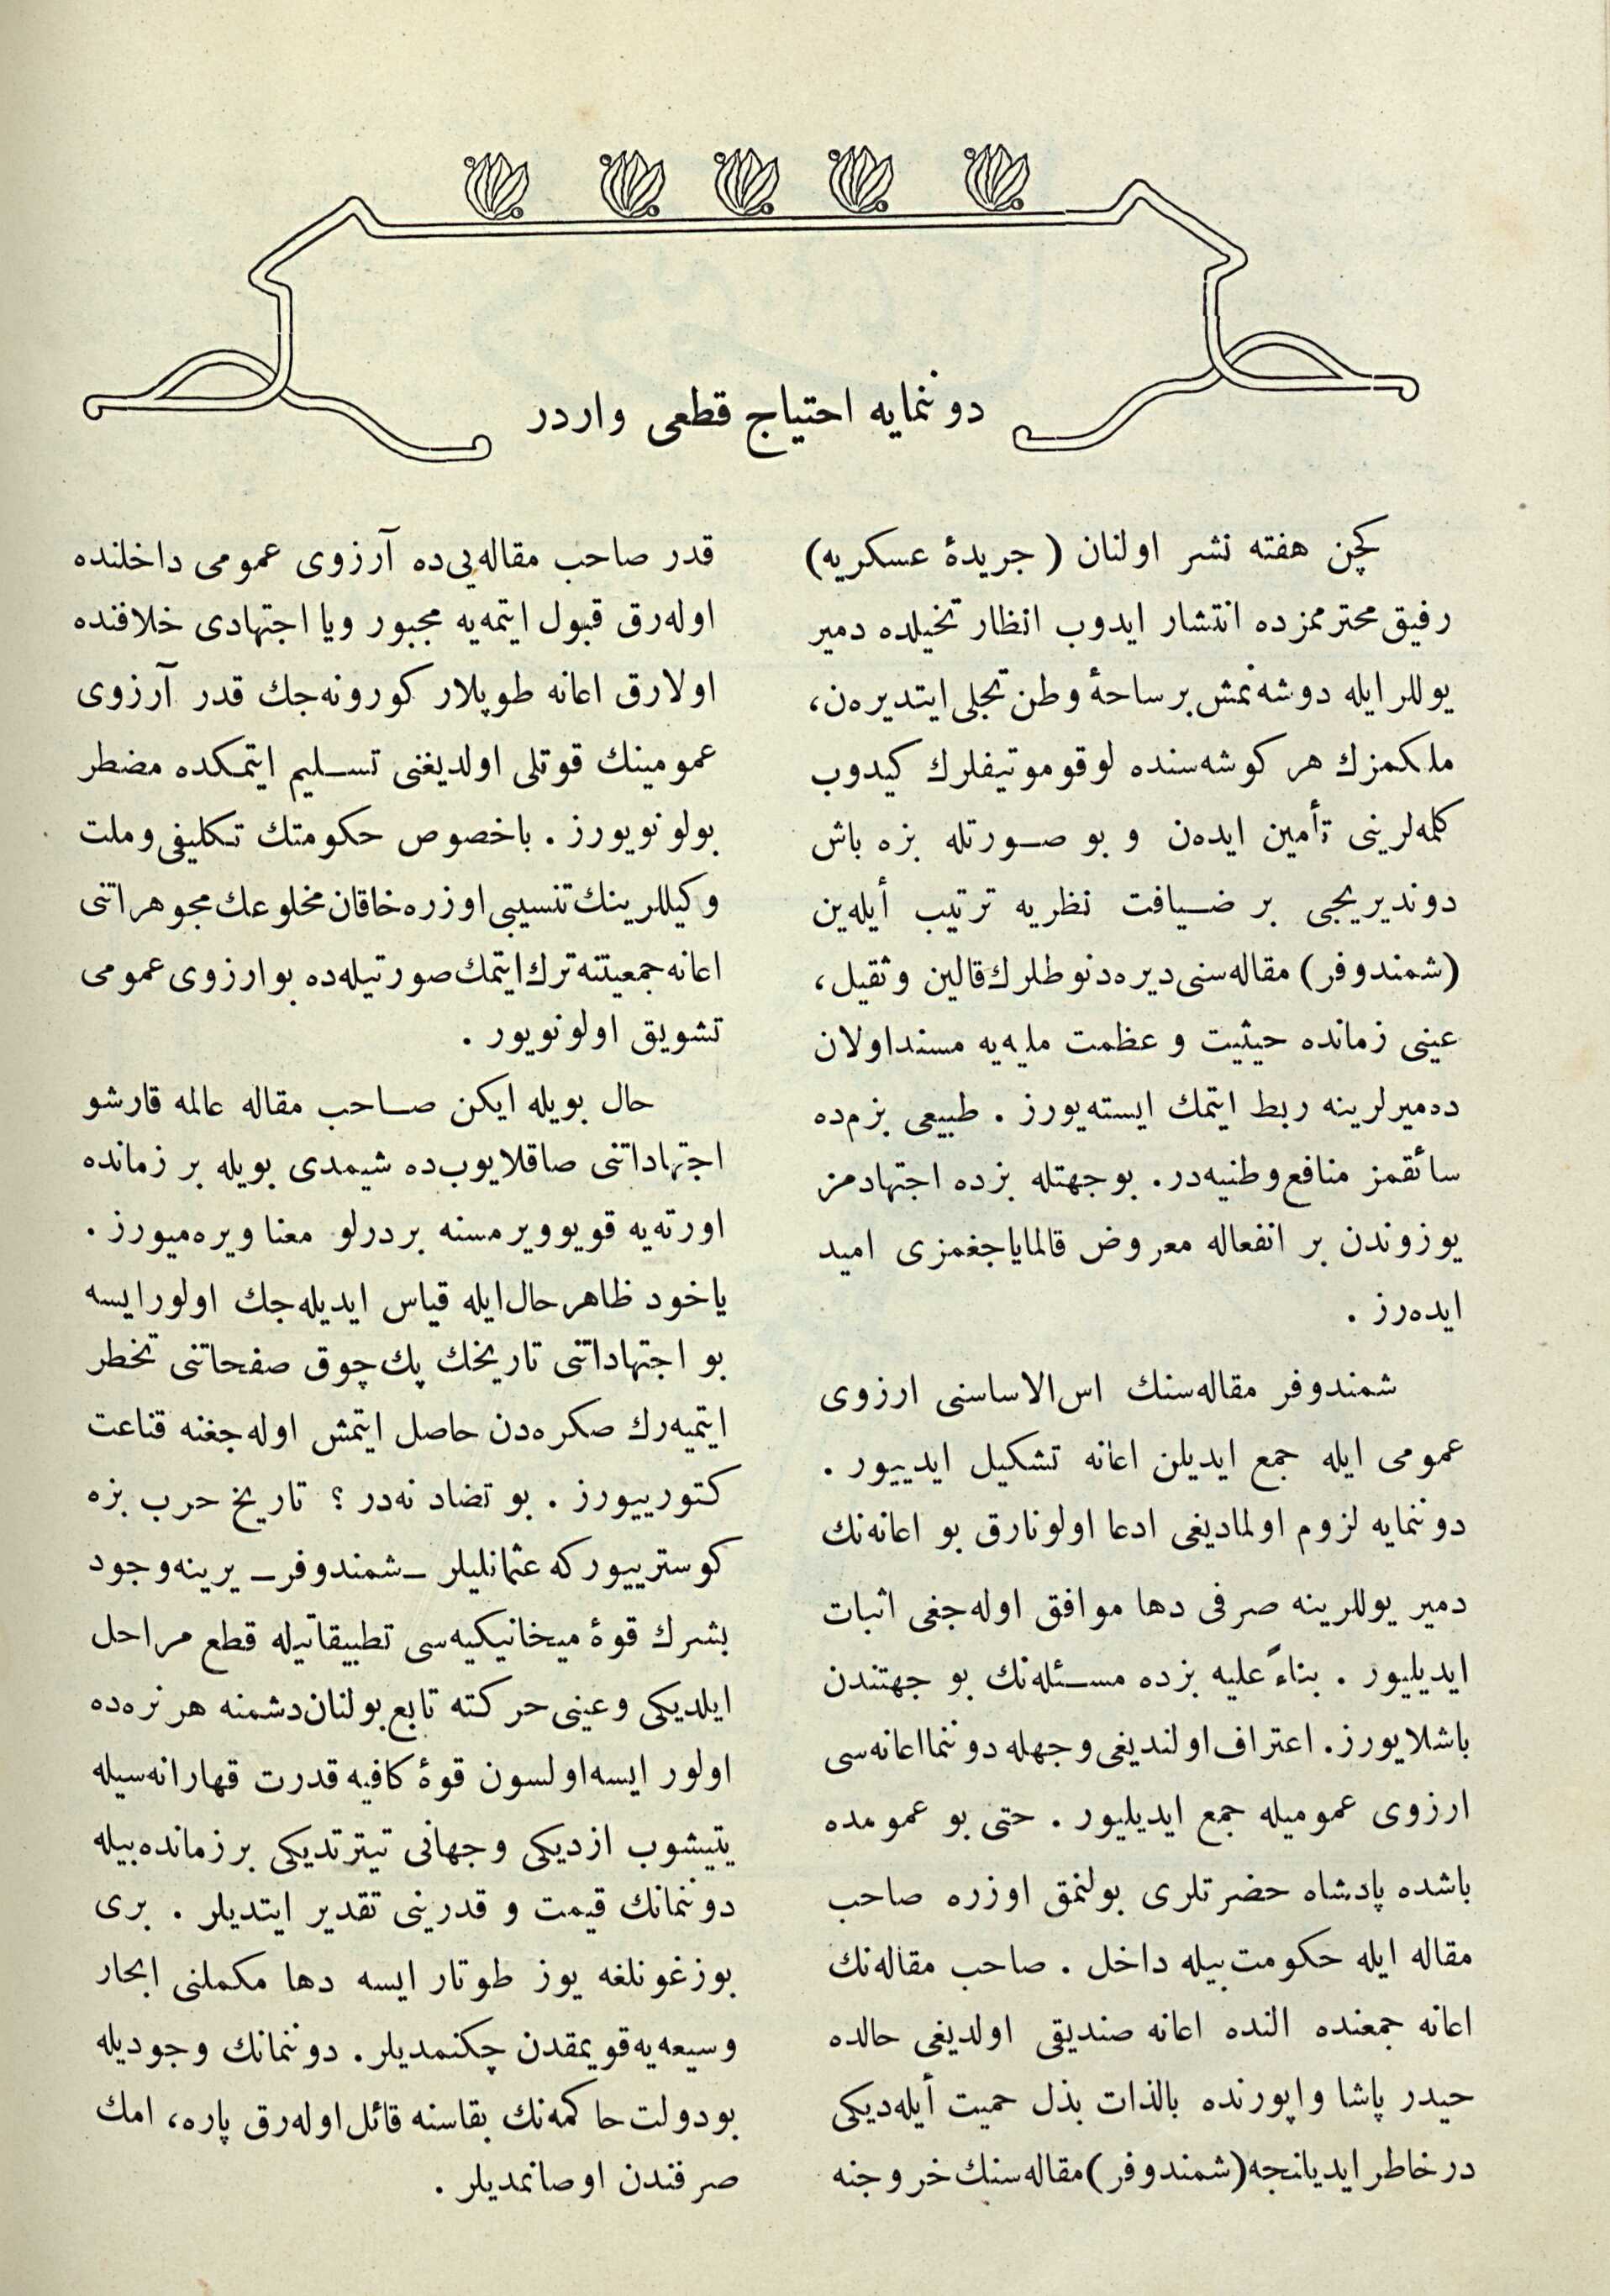 دوننمايه احتياج قطعی واردر
كچن هفته نشر اولنان (جريدۀ عسكريه)
رفيق محترممزده انتشار ايدوب انظار تخيلده دمير
يوللر ايله دوشه‌نمش بر ساحۀ وطن تجلی ايتديره‌ن،
ملكمزك هر كوشه‌سنده لوقوموتيفلرك كيدوب
كلمه‌لرينی تأمين ايده‌ن و بو صورتله بزه باش
دونديريجی بر ضيافت نظريه ترتيب أيله‌ين
(شمندوفر) مقاله‌سنی ديره‌دنوطلرك قالين وثقيل،
عينی زمانده حيثيت و عظمت مليه‌يه مسند اولان
ده‌ميرلرينه ربط ايتمك ايسته‌يورز . طبيعی بزم‌ده
سائقمز منافع وطنيه‌در. بوجهتله بزده اجتهادمز
يوزوندن بر انفعاله معروض قالماياجغمزی اميد
ايده‌رز .
شمندوفر مقاله‌سنك اس‌الاساسنی ارزوی
عمومی ايله جمع ايديلن اعانه تشكيل ايدييور .
دوننمايه لزوم اولماديغی ادعا اولونارق بو اعانه‌نك
دمير يوللرينه صرفی دها موافق اوله‌جغی اثبات
ايديليور . بناءً عليه بزده مسئله‌نك بو جهتندن
باشلايورز. اعتراف اولنديغی وجهله دوننما اعانه‌سی
ارزوی عموميله جمع ايديليور . حتی بو عمومده
باشده پادشاه حضرتلری بولنمق اوزره صاحب
مقاله ايله حكومت بيله داخل . صاحب مقاله‌نك
اعانه جمعنده النده اعانه صنديقی اولديغی حالده
حيدر پاشا واپورنده بالذات بذل حميت أيله‌ديكی
درخاطر ايديلنجه (شمندوفر) مقاله‌سنك خروجنه
قدر صاحب مقاله‌يی‌ده آرزوی عمومی داخلنده
اوله‌رق قبول ايتمه‌يه مجبور ويا اجتهادی خلافنده
اولارق اعانه طوپلار كورونه‌جك قدر آرزوی
عمومينك قوتلی اولديغنی تسليم ايتمكده مضطر
بولونويورز . باخصوص حكومتك تكليفی وملت
وكيللرينك تنسيبی اوزره خاقان مخلوعك مجوهراتنی
اعانه جمعيتنه ترك ايتمك صورتيله‌ده بو ارزوی عمومی
تشويق اولونويور .
حال بويله ايكن صاحب مقاله عالمه قارشو
اجتهاداتنی صاقلايوب‌ده شيمدی بويله بر زمانده
اورته‌يه قويوويرمسنه بر درلو معنا ويره‌ميورز .
ياخود ظاهر حال ايله قياس ايديله‌جك اولور ايسه
بو اجتهاداتنی تاريخك پك چوق صفحاتنی تخطر
ايتميه‌رك صكره‌دن حاصل ايتمش اوله‌جغنه قناعت
كتورييورز . بو تضاد نه‌در ؟ تاريخ حرب بزه
كوسترييوركه عثمانليلر ـ شمندوفر ـ يرينه وجود
بشرك قوۀ ميخانيكيه‌سی تطبيقاتيله قطع مراحل
ايلديكی وعينی حركته تابع بولنان دشمنه هر نره‌ده
اولور ايسه اولسون قوۀ كافيه قدرت قهارانه‌سيله
يتيشوب ازديكی وجهانی تيترتديكی بر زمانده بيله
دوننمانك قيمت و قدرينی تقدير ايتديلر . بری
بوزغونلغه يوز طوتار ايسه دها مكملنی ابحار
وسيعه‌يه قويمقدن چكنمديلر. دوننمانك وجوديله
بودولت حاكمه‌نك بقاسنه قائل اوله‌رق پاره، امك
صرفندن اوصانمديلر .